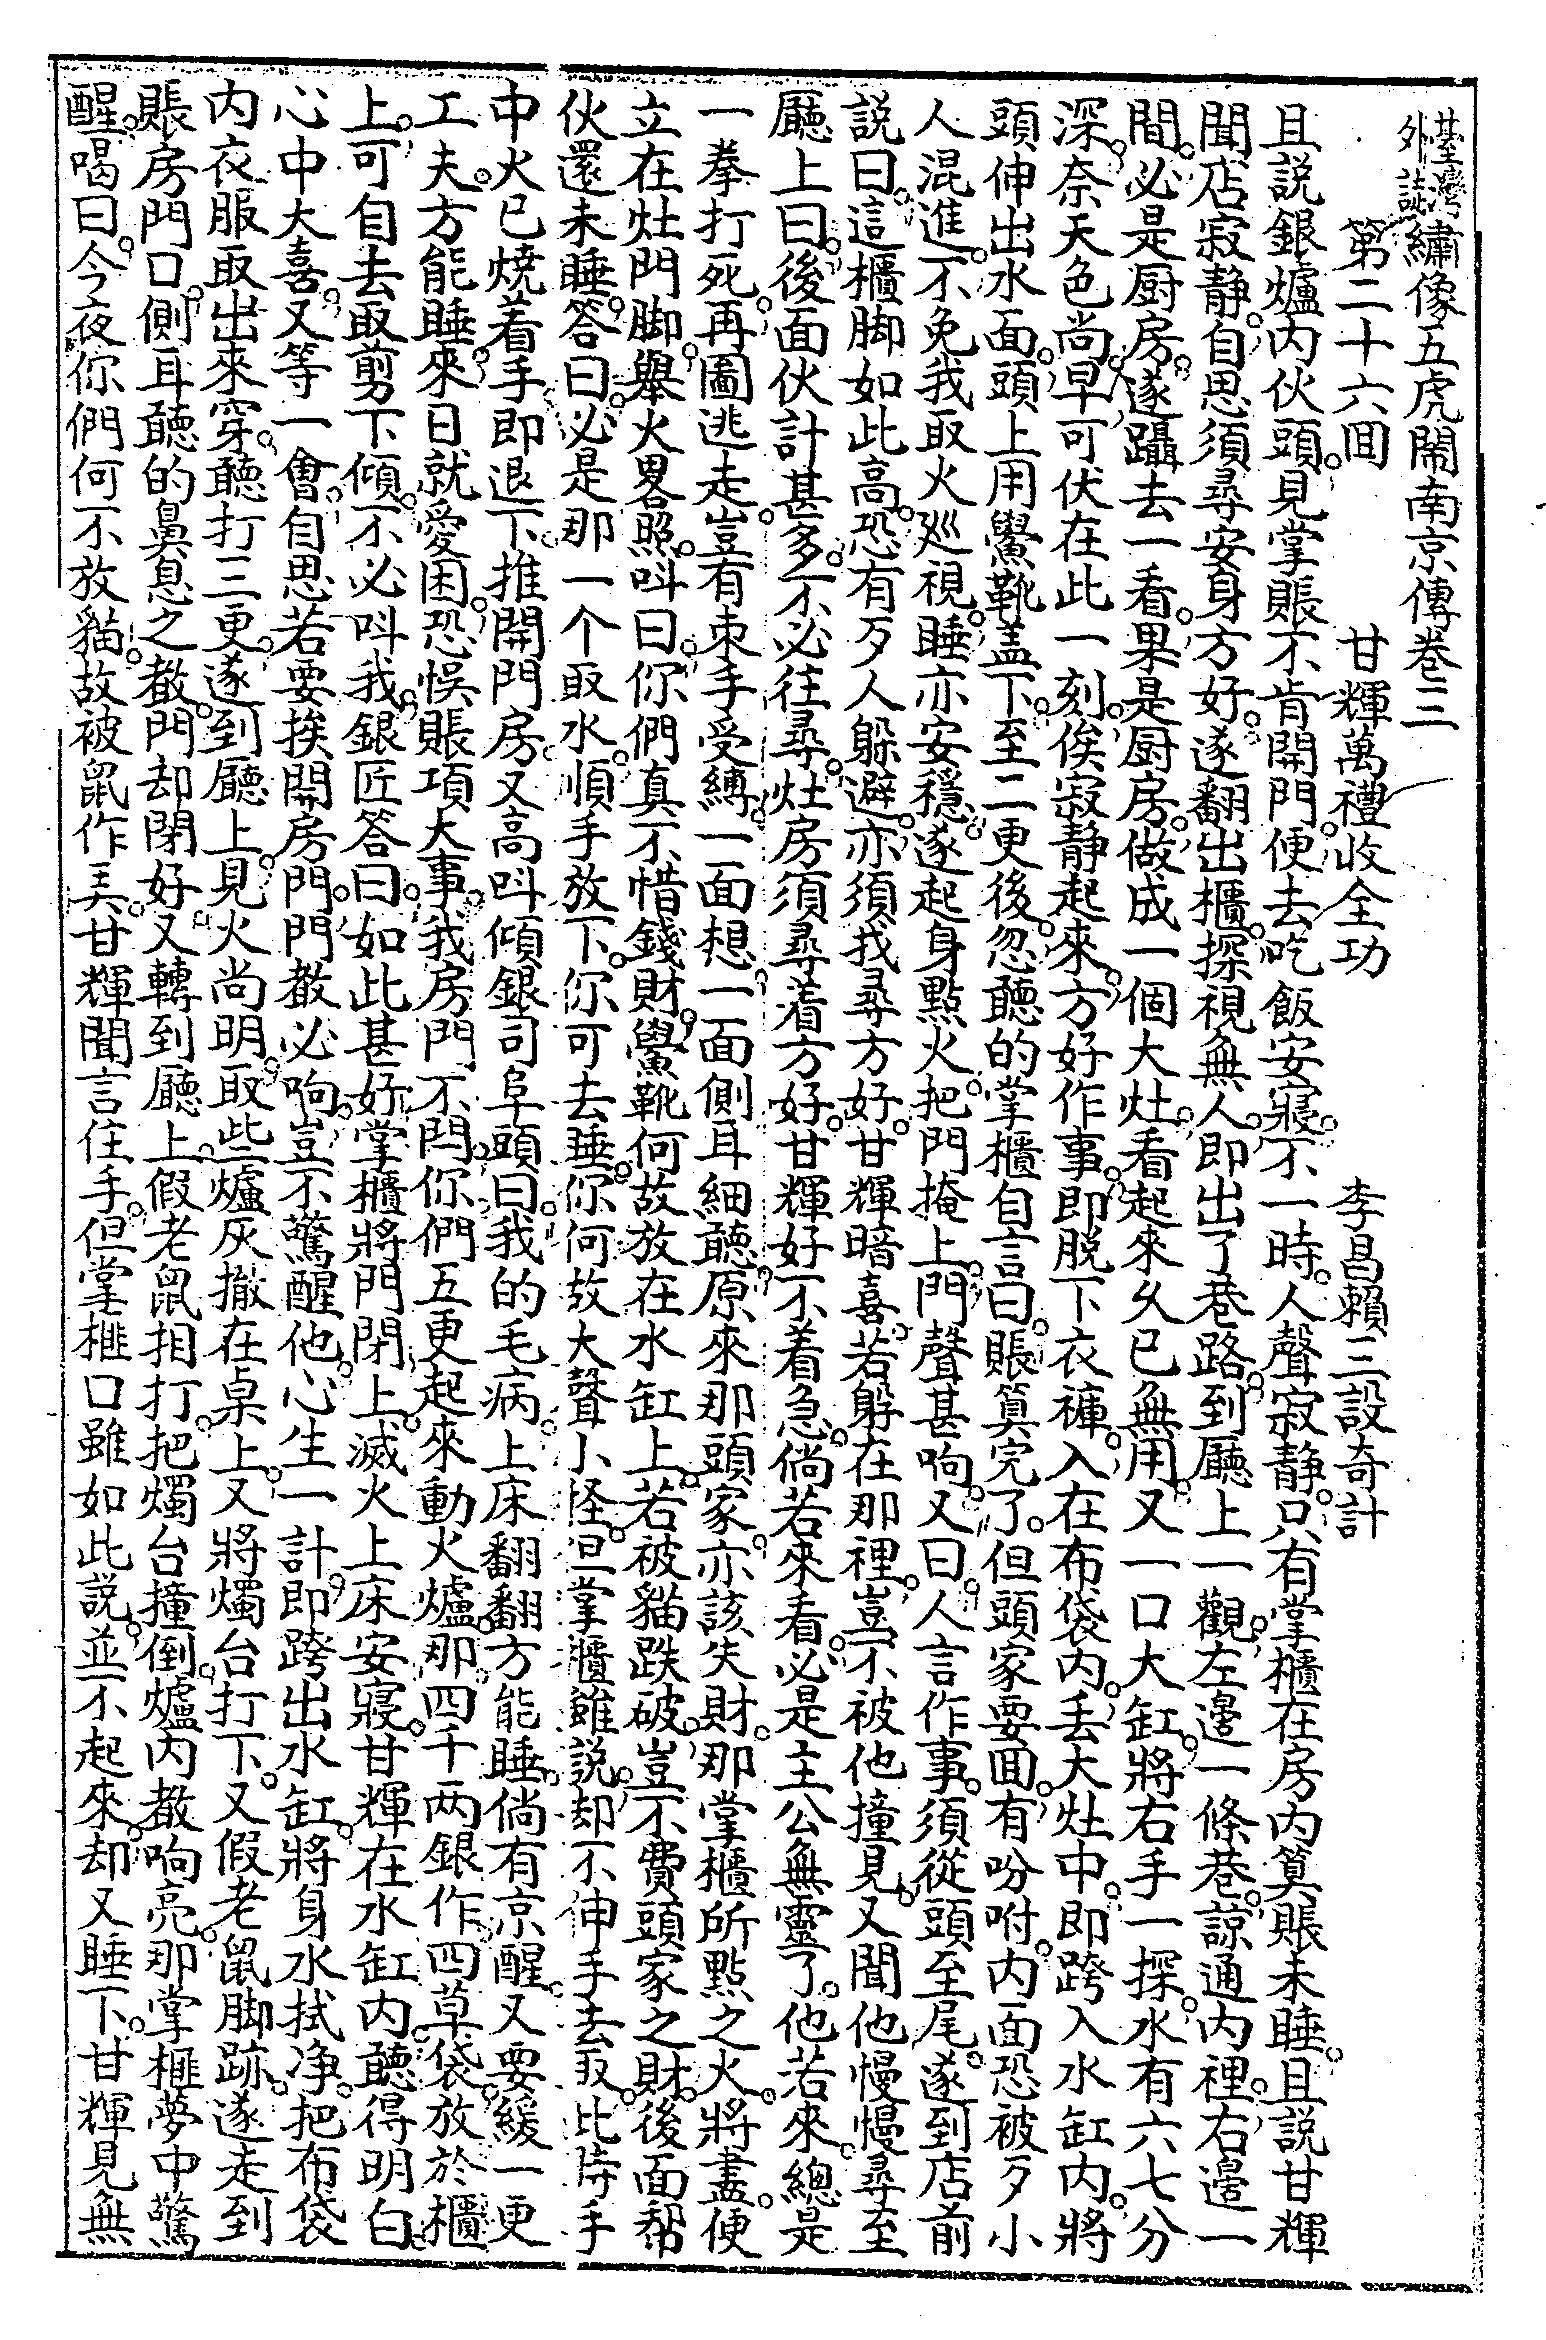 臺灣外誌繡像五虎鬧南京傳卷三
第二十六囬　甘輝萬禮收全功　李昌賴三設奇計
且説銀爐内伙頭。見掌賬不肯開門。便去吃飯安寢。不一時。人聲寂静。只有掌櫃在房内算賬未睡。且説甘輝
聞店寂静。自思須尋安身方好。遂翻出櫃。探視無人。即出了巷路。到廳上一觀。左邊一條巷。諒通内裡。右邊一
間。必是厨房。遂躡去一看。果是厨房。做成一個大灶。看起來久已無用。又一口大缸。將右手一探。水有六七分
深。奈天色尚早。可伏在此一刻。俟寂静起來。方好作事。即脱下衣褲。入在布袋内。丢大灶中。即跨入水缸内。將
頭伸出水面。頭上用鱟靴盖下。至二更後。忽聽的掌櫃自言曰。賬算完了。但頭家要囬。有吩咐。内面恐被歹小
人混進。不免我取火廵視。睡亦安穩。遂起身點火把。門掩上。門聲甚响。又曰。人言作事。須從頭至尾。遂到店前
説曰。這櫃脚如此高。恐有歹人躲避。亦須我尋方好。甘輝暗喜。若躲在那裡。豈不被他撞見。又聞他慢慢尋至
廳上曰。後面伙計甚多。不必往尋。灶房須尋着方好。甘輝好不着急。倘若來看。必是主公無靈了。他若來。總是
一拳打死。再圖逃走。豈有束手受縛。一面想。一面側耳細聽。原來那頭家。亦該失財。那掌櫃所點之火。將盡。便
立在灶門脚。舉火畧照。呌曰。你們真不惜錢財。鱟靴何故放在水缸上。若被貓跌破。豈不費頭家之財。後面幇
伙還未睡。答曰。必是那一个取水。順手放下。你可去睡。你何故大聲小怪。但掌櫃雖説。却不伸手去取。此時手
中火已燒着手。即退下。推開門房。又高呌傾銀司阜頭曰。我的毛病。上床翻翻方能睡。倘有京醒。又要緩一更
工夫。方能睡。來日就愛困。恐悞賬項大事。我房門不閂。你們五更起來動火爐。那四千两銀。作四草袋。放於櫃
上。可自去取剪下傾。不必呌我。銀匠答曰。如此甚好。掌櫃將門閉上。滅火上床安寢。甘輝在水缸内。聽得明白
心中大喜。又等一會。自思若要挨開房門。門聲必响。豈不驚醒他。心生一計。即跨出水缸。將身水拭净。把布袋
内衣服取出來穿。聽打三更。遂到廳上。見火尚明。取些爐灰撒在桌上。又將燭台打下。又假老鼠脚跡。遂走到
賬房門口。側耳聽的鼻息之聲。門却閉好。又轉到廳上。假老鼠相打。把燭台撞倒。爐内聲响亮。那掌櫃夢中驚
醒。喝曰。今夜你們何不放貓。故被鼠作弄。甘輝聞言住手。但掌櫃口雖如此説。並不起來。却又睡下。甘輝見無